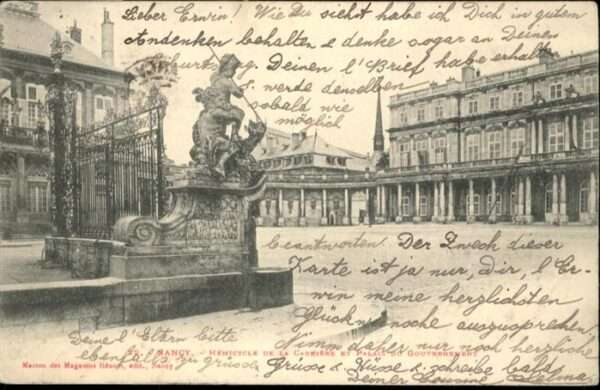 Lieber Erwin! Wie Du siehst habe ich Dich in gutem
Andenken behalten & denke sogar an Deinen
Geburtstag. Deinen l' Brief habe erhalten
& werde denselben
sobald wie
möglich
beantworten. Der Zweck dieser
Karte ist ja nur, dir, l' Er-
win meine herzlichsten
Glückwünsche auszusprechen.
Nimm daher nur noch herzliche
Grüsse & Küsse & schreibe bald
Deiner Cousine
Deine l' Eltern bitte
ebenfalls zu grüssen
NANCY. - HÉMICYCLE DE LA CARRIÈRE ET PALAIS DU GOUVERNEMENT
Maison des Magasins Réunis, édit., Nancy